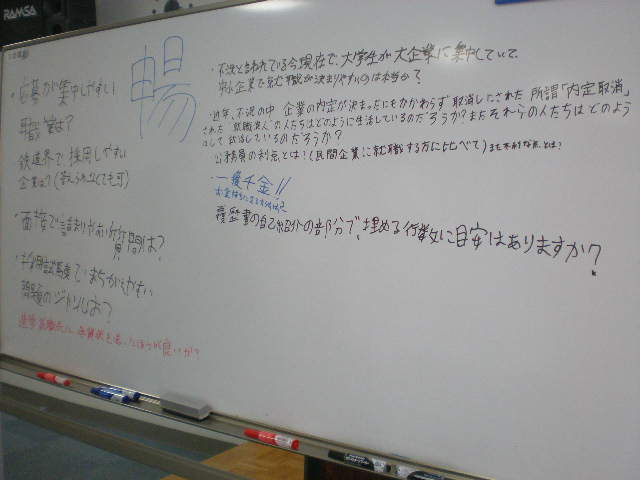 RAMSA
暢
・応募が集中しやすい
職業は?
鉄道業界で採用しやすい
企業は?(教えられなくても可)
・面接で詰まりやすい質問は?
・筆記試験でいちばんまちがえやすい
問題のジャンルは?
・不況と言われている今現在で、大学生が大企業に集中していて、
中小企業で就職が決まりやすいのは本当か?
・近年、不況の中企業の内定が決まったにもかかわらず取消しにされた所謂「内定取消」
された就職浪人の人たちはどのように生活しているのだろうか?またそれらの人たちはどのよう
にして就活しているのだろうか?
公務員の利点とは!(民間企業に就職する方に比べて)また不利な点とは?
・一獲千金!!
履歴書の自己紹介の部分で、埋める行数に目安はありますか?